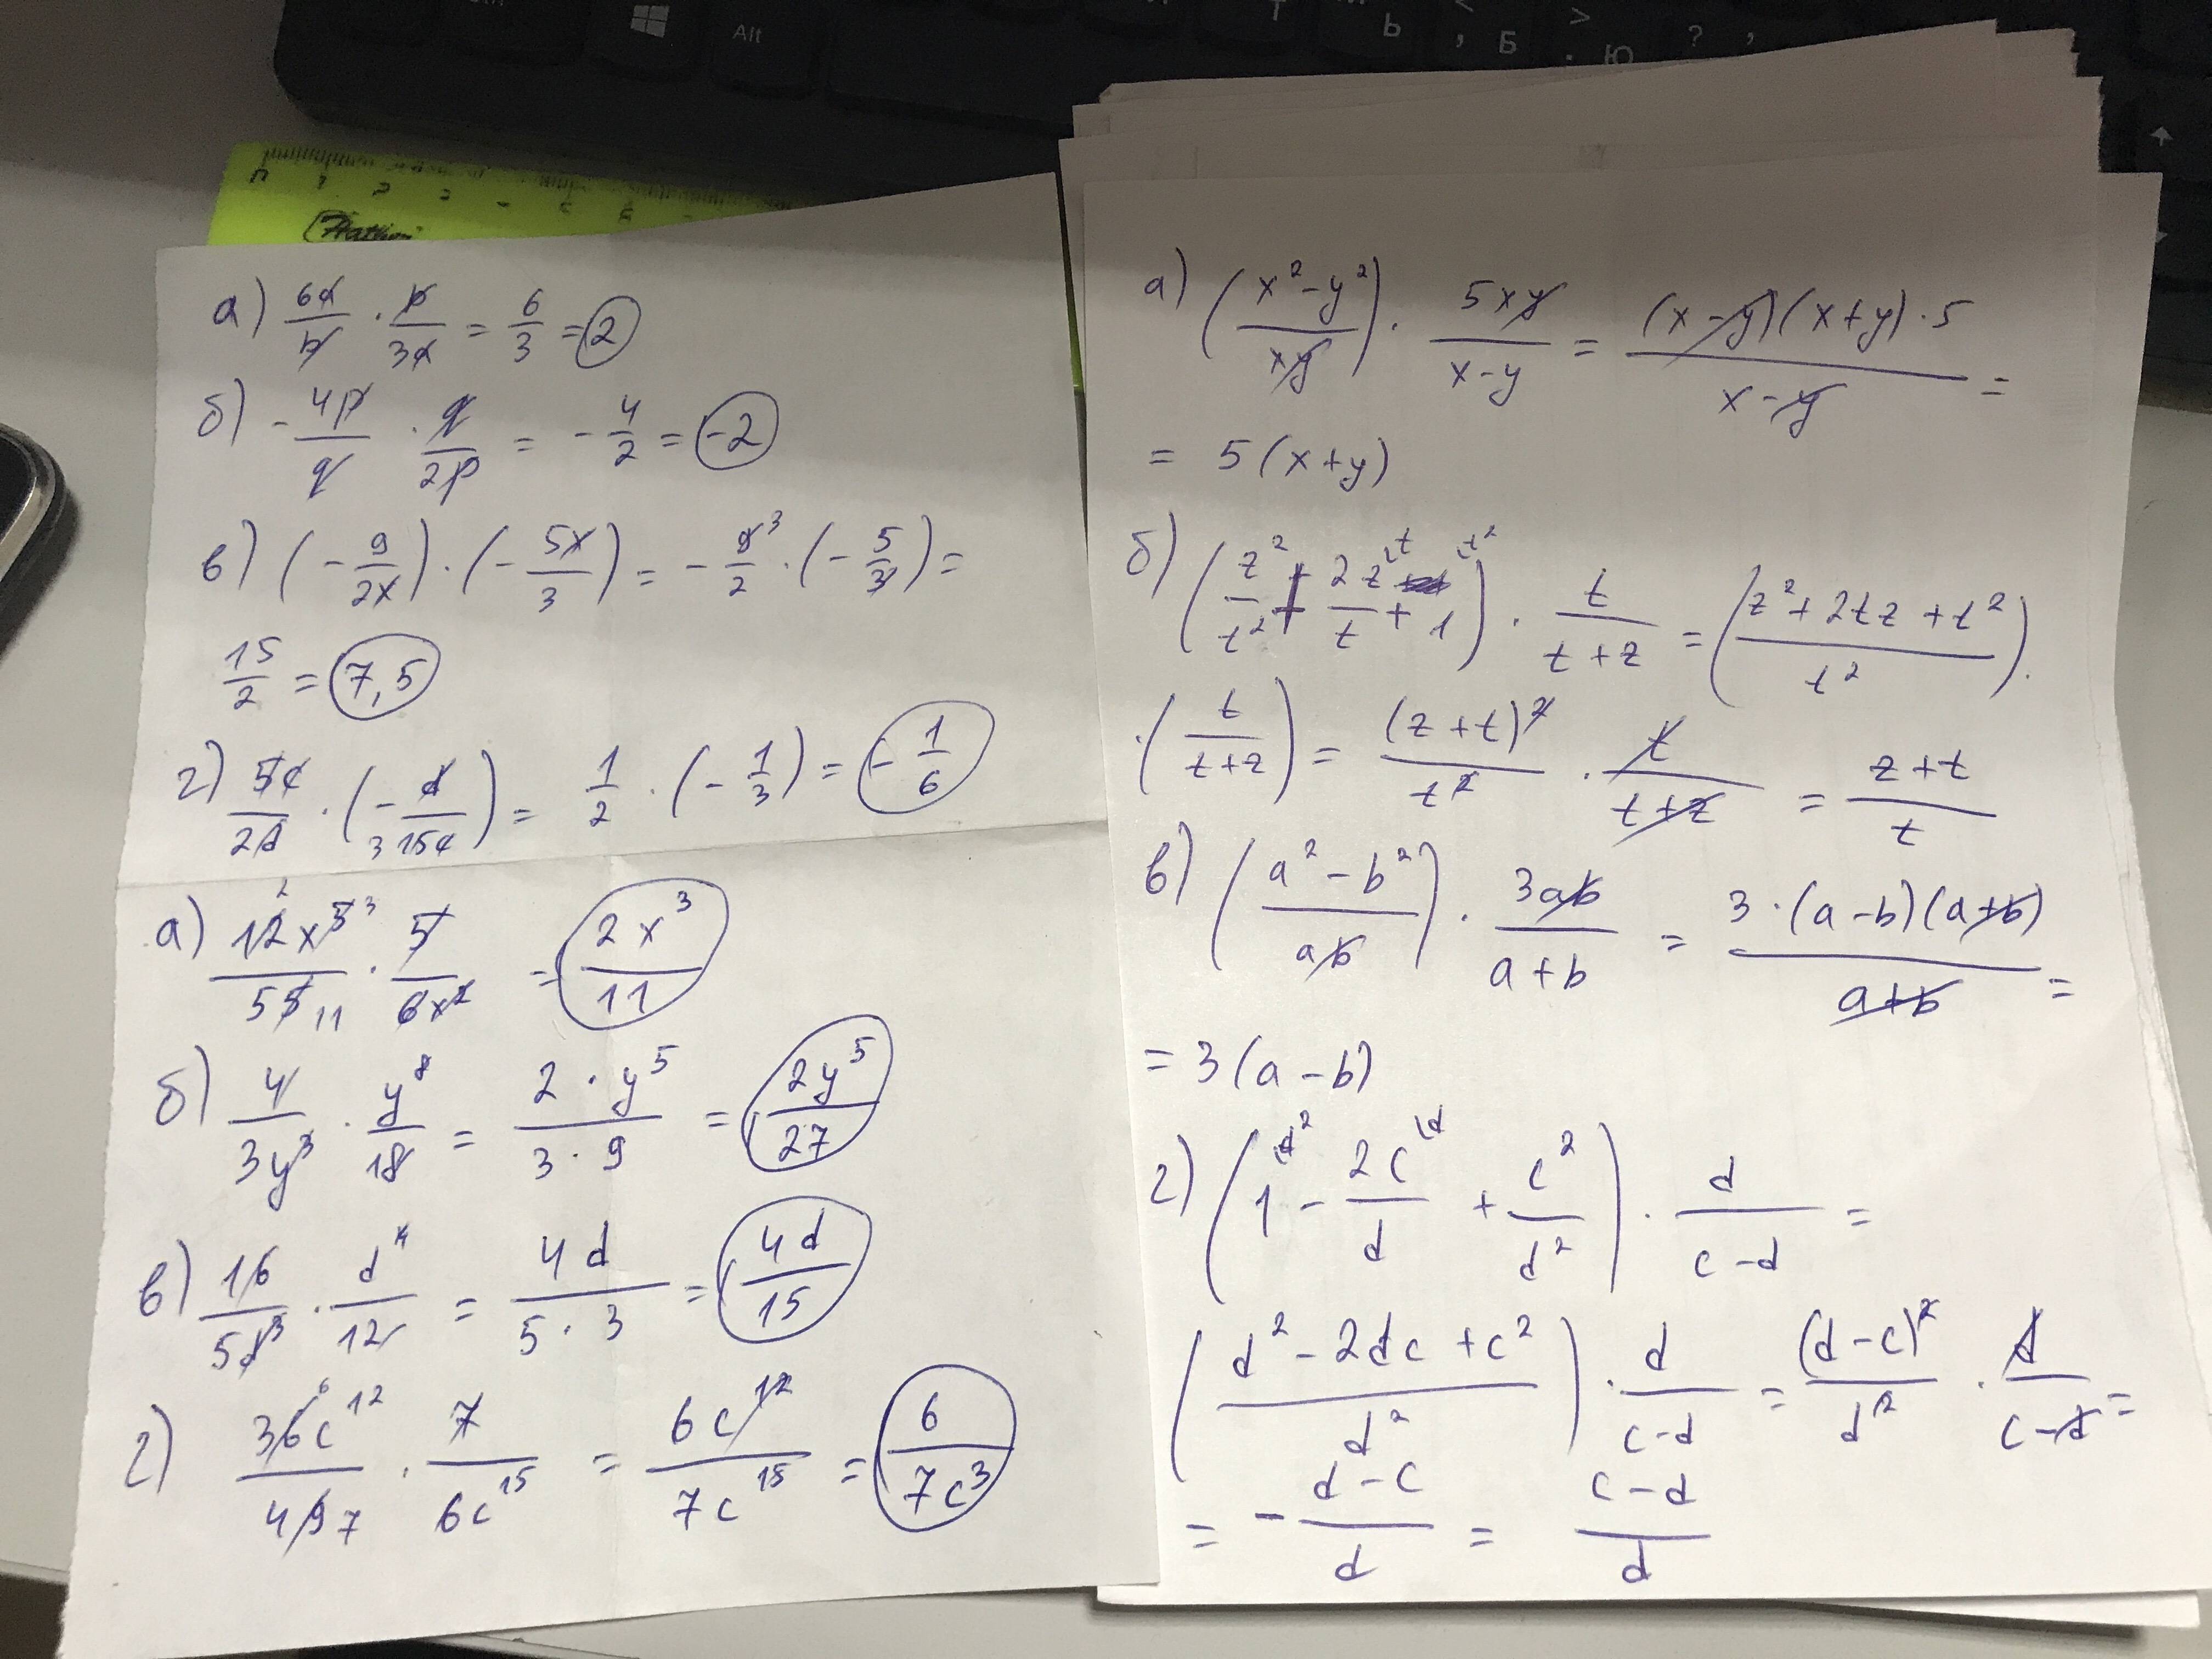 Alt
Т Ь < , Б > . Ю ? ,
а) 6a/b · b/3a = 6/3 = 2
б) - 4p/q · q/2p = - 4/2 = -2
в) (- 9/2x) · (- 5x/3) = - 9³/2 · (- 5/3) =
15/2 = 7,5
г) 5c/2d · (- d/₃15c) = 1/2 · (- 1/3) = - 1/6
а) 12²x⁵³/55₁₁ · 5/6x² = 2x³/11
б) 4/3y³ · y⁸/18 = 2 · y⁵/3 · 9 = 2y⁵/27
в) 16/5d³ · d⁴/12 = 4d/5 · 3 = 4d/15
г) 36⁶c¹²/49 7 · 7/6c¹⁵ = 6c¹²/7c¹⁵ = 6/7c³
а) (x²-y²/xy) · 5xy/x-y = (x-y)(x+y)·5/x-y =
= 5(x+y)
б) (z²/t² + 2z\t/t + 1\t²) · t/t+z = (z²+2tz+t²/t²) ·
· (t/t+z) = (z+t)²/t² · t/t+z = z+t/t
в) (a²-b²/ab) · 3ab/a+b = 3·(a-b)(a+b)/a+b =
= 3(a-b)
г) (1\d² - 2c\d/d + c²/d²) · d/c-d =
(d²-2dc+c²/d²) · d/c-d = (d-c)²/d² · d/c-d =
= - d-c/d = c-d/d